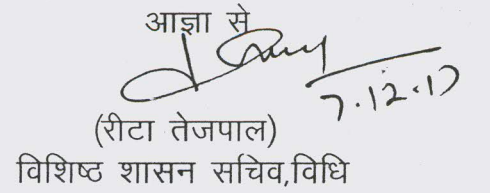 आज्ञा से
7.12.17
(रीटा तेजपाल)
विशिष्ठ शासन सचिव,विधि